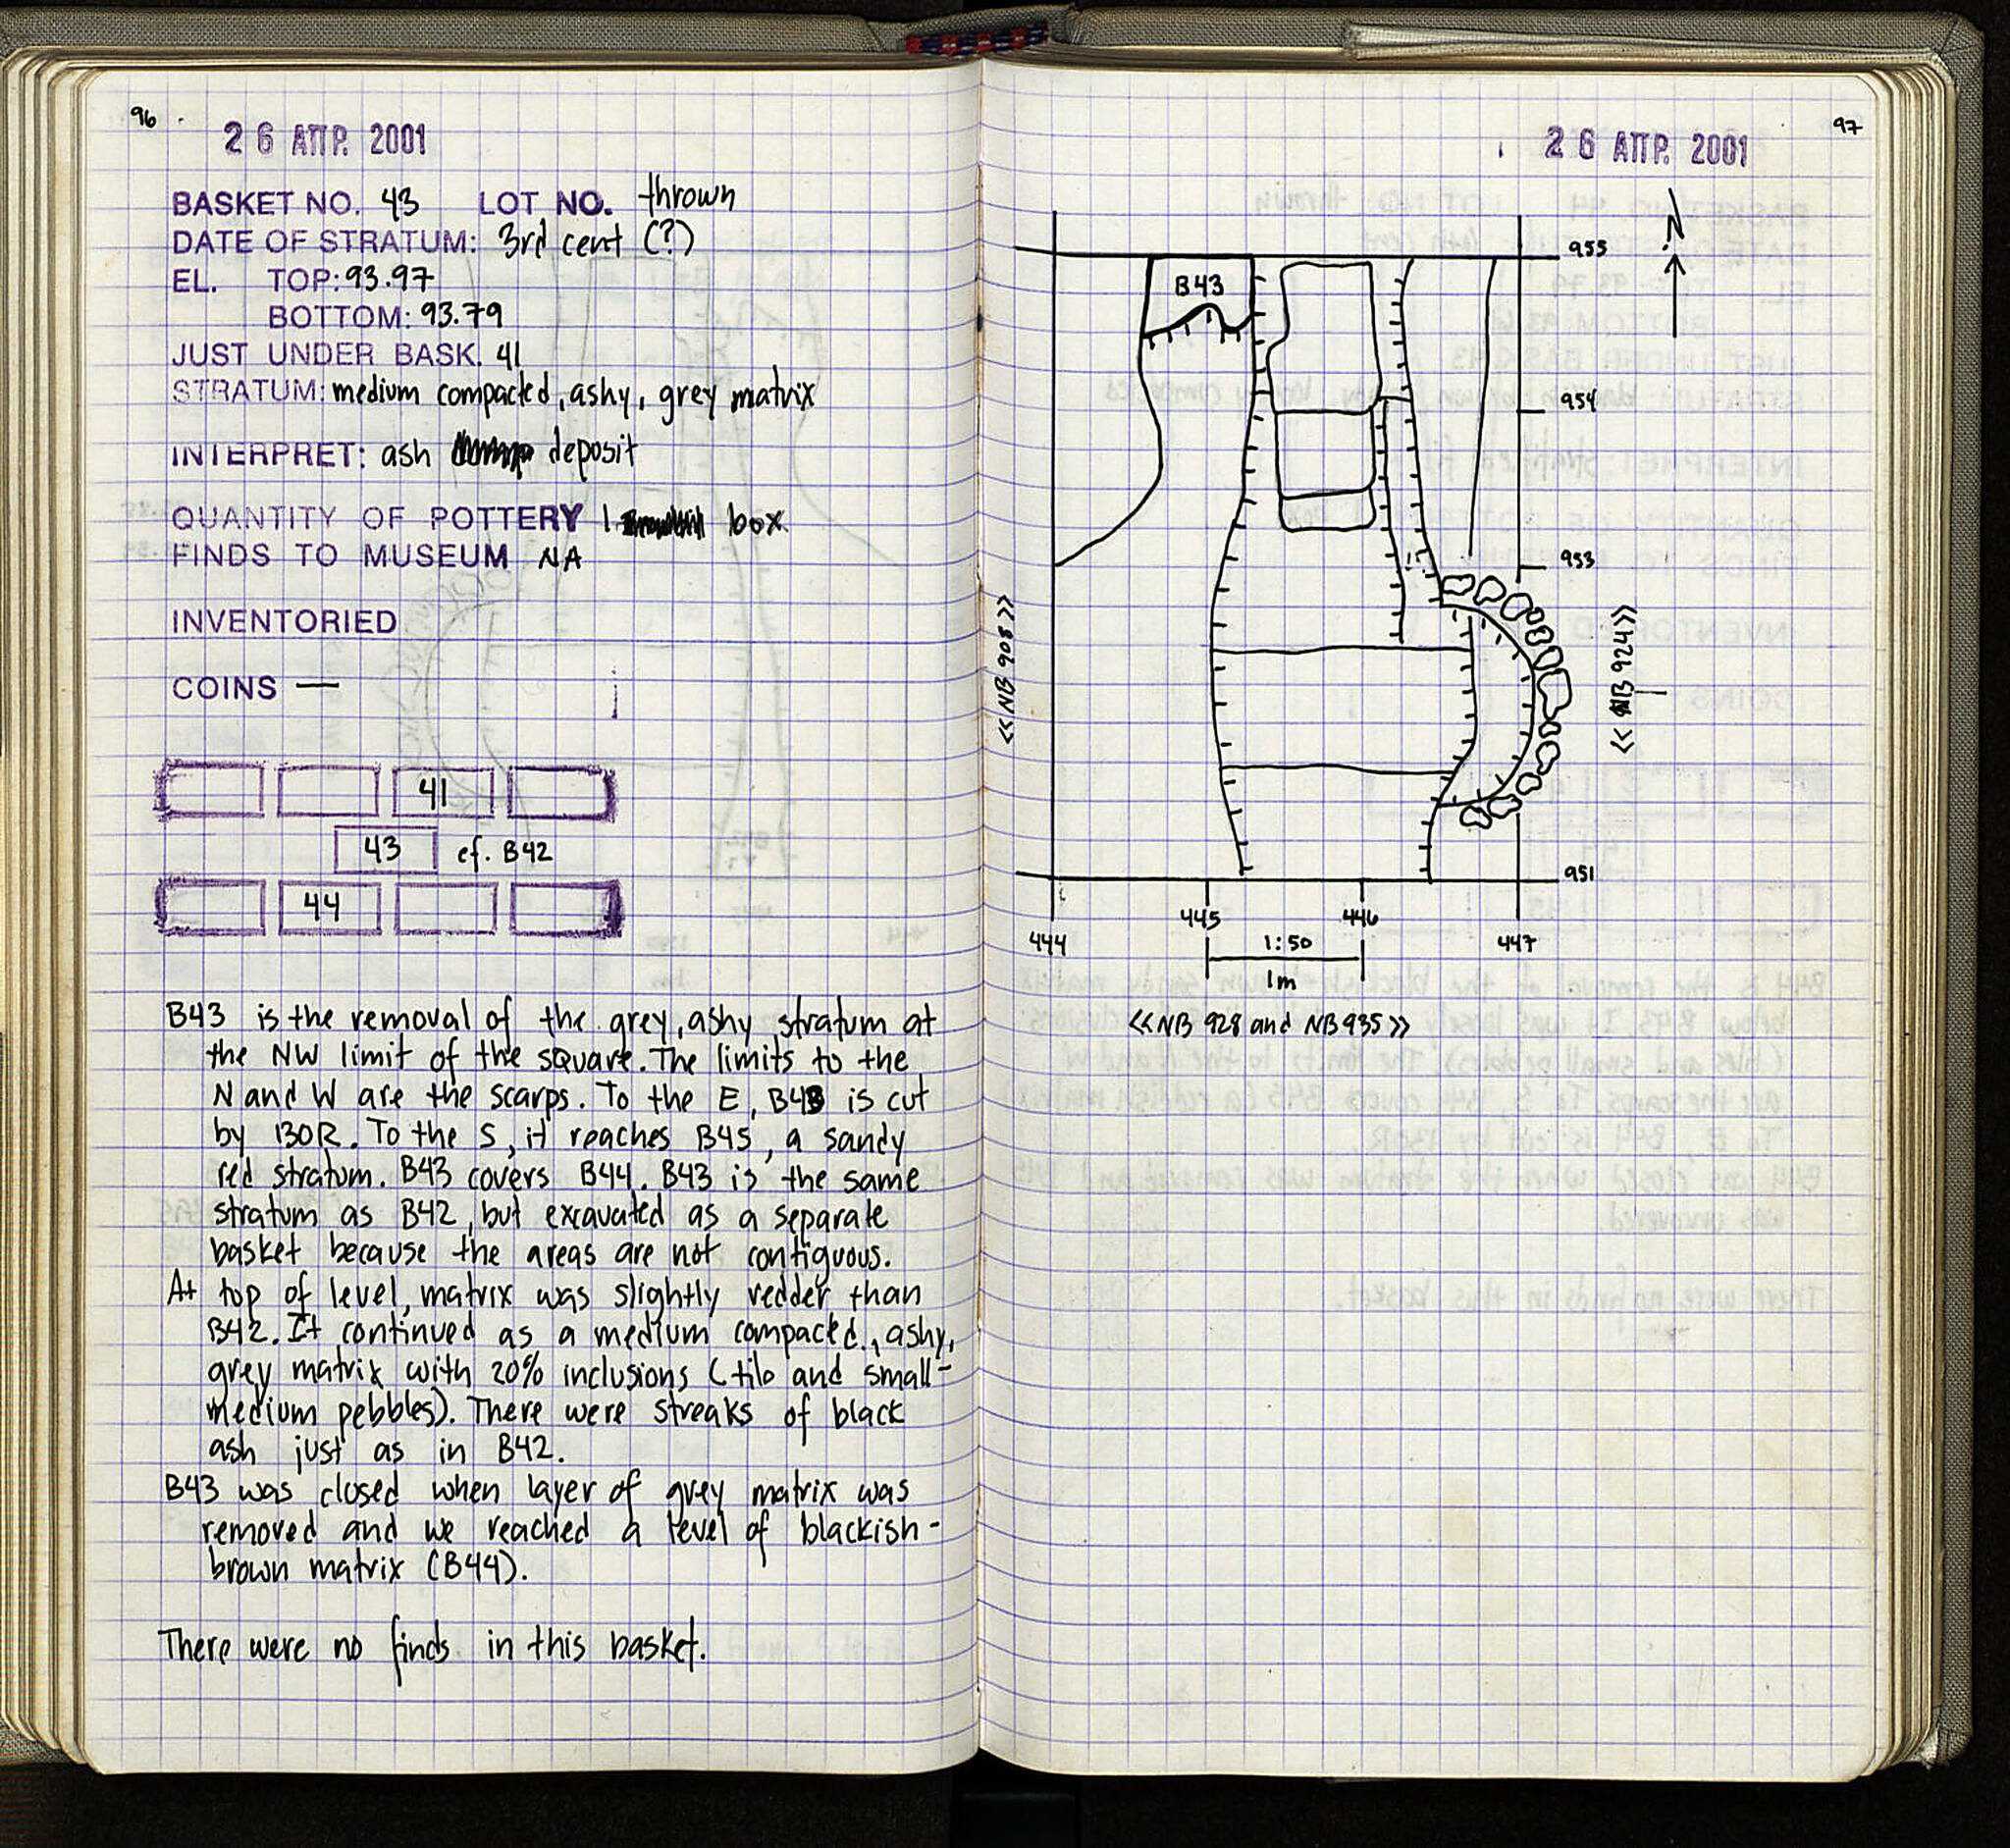 96
26 ΑΠΡ. 2001
BASKET NO. 43 LOT NO. thrown
DATE OF STRATUM: 3rd cent (?)
EL. TOP: 93.97
BOTTOM: 93.79
JUST UNDER BASK. 41
STRATUM: medium compacted, ashy, grey matrix
INTERPRET: ash deposit
QUANTITY OF POTTERY 1 box
FINDS TO MUSEUM NA
INVENTORIED
COINS —
41
43 cf. B42
44
B43 is the removal of the grey, ashy stratum at
the NW limit of the square. The limits to the
N and W are the scarps. To the E, B43 is cut
by 130R. To the S, it reaches B45, a sandy
red stratum. B43 covers B44. B43 is the same
stratum as B42, but excavated as a separate
basket because the areas are not contiguous.
At top of level, matrix was slightly redder than
B42. It continued as a medium compacted, ashy,
grey matrix with 20% inclusions (tile and small-
medium pebbles). There were streaks of black
ash just as in B42.
B43 was closed when layer of grey matrix was
removed and we reached a level of blackish-
brown matrix (B44).
There were no finds in this basket.
97
26 ΑΠΡ. 2001
N
955
B43
954
953
<<NB 908>>
<<NB 924>>
951
445 446
444 1:50 447
1m
<<NB 928 and NB 935>>